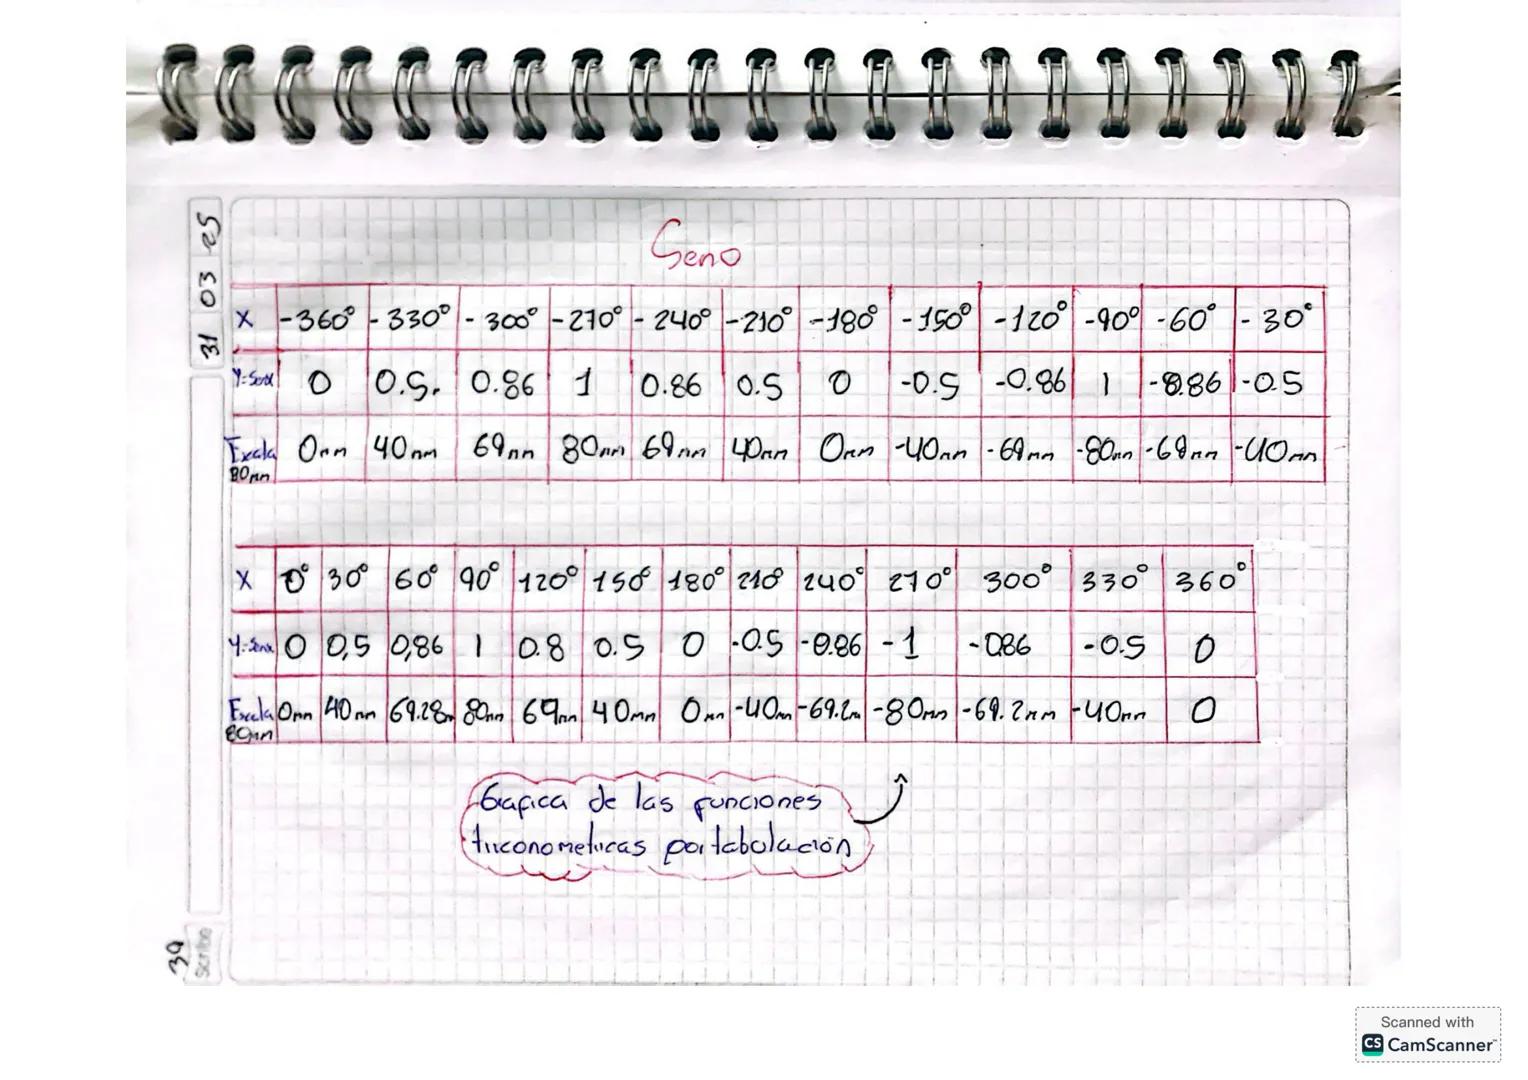 31 03 25
Seno
X -360° -330° -300° -270° -240° -210° -180° -150° -120° -90° -60° -30°
Y=Senx 0 0.5. 0.86 1 0.86 0.5 0 -0.5 -0.86 1 -0.86 -0.5
Escala 0mm 40mm 69mm 80mm 69mm 40mm 0mm -40mm -69mm -80mm -69mm -40mm
80mm
X 0° 30° 60° 90° 120° 150° 180° 210° 240° 270° 300° 330° 360°
Y=Senx 0 0,5 0,86 1 0.8 0.5 0 -0.5 -0.86 -1 -086 -0.5 0
Escala 0mm 40mm 69.28m 80mm 69mm 40mm 0mm -40m -69.2m -80mm -69.2mm -40mm 0
80mm
Grafica de las funciones
triconometricas por tabulación
39
scribe
Scanned with
CS CamScanner